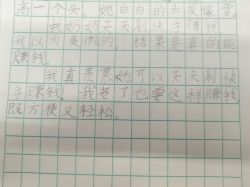 高一个头，她白白的头发像雪
我奶奶天天刷快手赚钱，
我以为是假的，结果是真的能
赚钱。
我真羡慕她可以天天刷快
手赚钱，我老了也要这样赚钱
既方便又轻松。